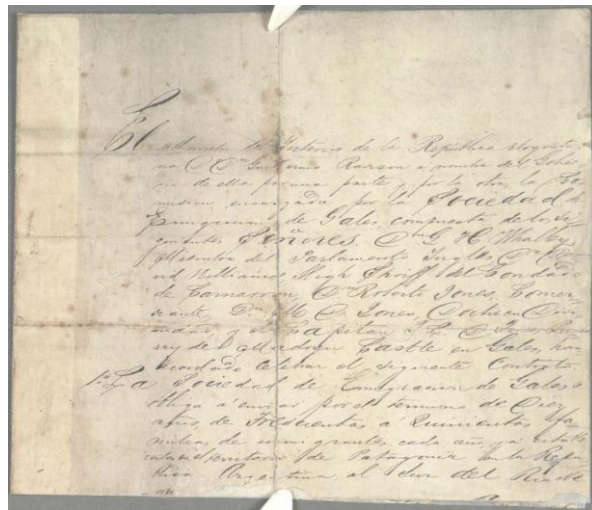 El Ministro del Interior de la República Argenti
na Dn. Guillermo Rawson a nombre del Gobier
no de ella por una parte y por la otra, la Co
mision, encargada por la Sociedad de
Emigracion de Gales, compuesta de los Si
guientes Señores, Dn. G. H. Whalley,
Miembro del Parlamento Ingles, Dn. Da
vid Williams High Sheriff del Condado
de Carnarvon, Dn. Roberto Jones, Comer
ciante, Dn. M. D. Jones, Doctor en Divi
nidad y el Capitan
de Madryn Castle en Gales, han
acordado celebrar el siguiente Contrato.
1o. La Sociedad de Emigracion de Gales se
obliga a enviar por el termino de Diez
años, de Trescientas a Quinientas fa
milias de emigrantes cada año, para establ
en el territorio de Patagonia en la Repu
blica Argentina, al Sur del Rio